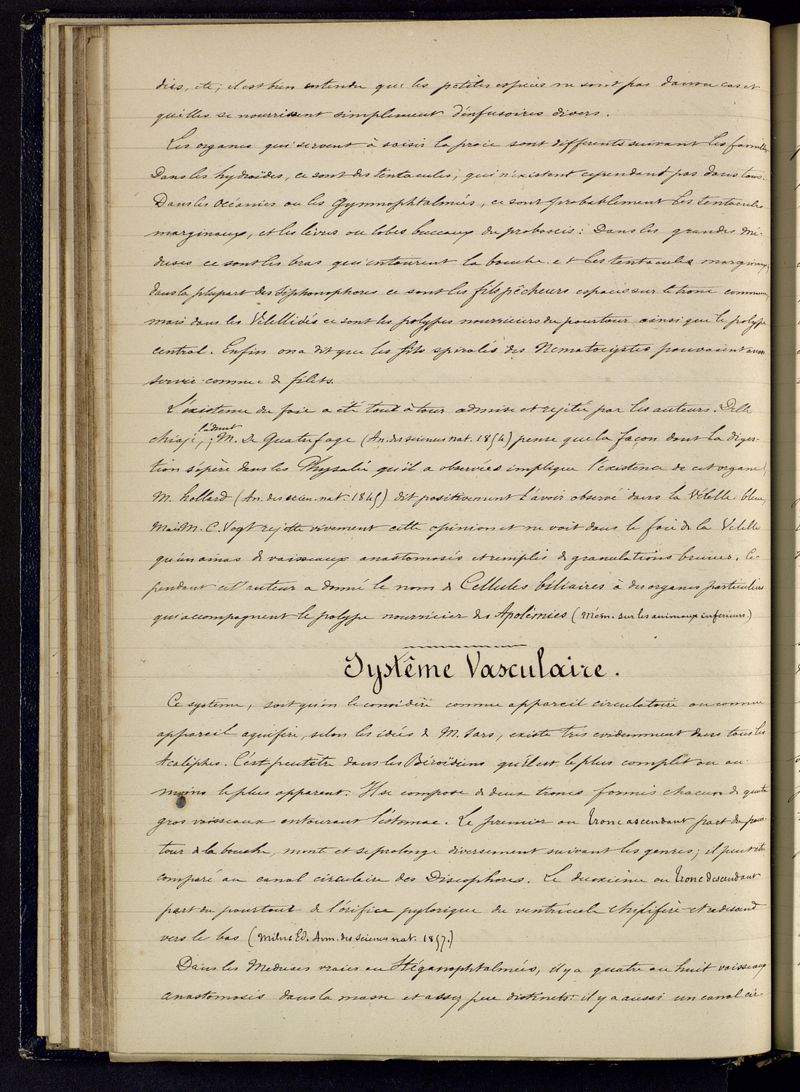 dies, etc; il est bien entendu que les petites espèces ne sont pas dans ce cas et
qu'elles se nourrissent simplement d'infusoires divers.
Les organes qui servent à saisir la proie sont différents suivant les familles
Dans les hydroïdes, ce sont des tentacules; qui n'existent cependant pas dans tous.
Dans les Océanies ou les Gymnophtalmés, ce sont probablement les tentacules
marginaux, et les lèvres ou lobes buccaux du proboscis: Dans les grandes mé-
duses ce sont les bras qui entourent la bouche et les tentacules marginaux,
dans la plupart des Siphonophores ce sont les fils pêcheurs espacés sur le tronc commun
mais dans les Vélellidés ce sont les polypes nourriciers du pourtour ainsi que le polype
central. Enfin on a dit que les fils spiralés des Nématocystes pouvaient
servir comme de filets.
L'existence du foie a été tout à tour admise et rejetée par les auteurs. Delle
chiaje, l'admet; M. De Quatrefage (An. des sciences nat. 1854) pense que la façon dont la diges-
tion s'opère dans les Physalies qu'il a observées implique l'existence de cet organe;
M. hollard (An. des scien. nat. 1845) dit positivement l'avoir observé dans la Vélelle bleue,
Mais M. C. Vogt rejette vivement cette opinion et ne voit dans le foie de la Vélelle
qu'un amas de vaisseaux anastomosés et remplis de granulations brunes. Ce-
pendant cet auteur a donné le nom de Cellules biliaires à des organes particuliers
qui accompagnent le polype nourricier des Apolémies (Mém. sur les animaux inférieurs)
Système Vasculaire.
Ce système, soit qu'on le considère comme appareil circulatoire ou comme
appareil aquifère, selon les idées de M. Sars, existe très évidemment dans tous les
Acalèphes. C'est peut être dans les Béroïdiens qu'il est le plus complet ou au
moins le plus apparent. Il se compose de deux troncs formés chacun de quatre
gros vaisseaux entourant l'estomac. Le premier ou tronc ascendant part du pour-
tour de la bouche, monte et se prolonge diversement suivant les genres; il peut être
comparé au canal circulaire des Discophores. Le deuxième ou tronc descendant
part du pourtour de l'orifice pylorique du ventricule chylifère et redescend
vers le bas (Milne Ed. Ann. des sciences nat. 1857.)
Dans les Méduses vraies ou Stéganophtalmés, il y a quatre ou huit vaisseaux
anastomosés dans la masse et assez peu distincts: il y a aussi un canal cir-